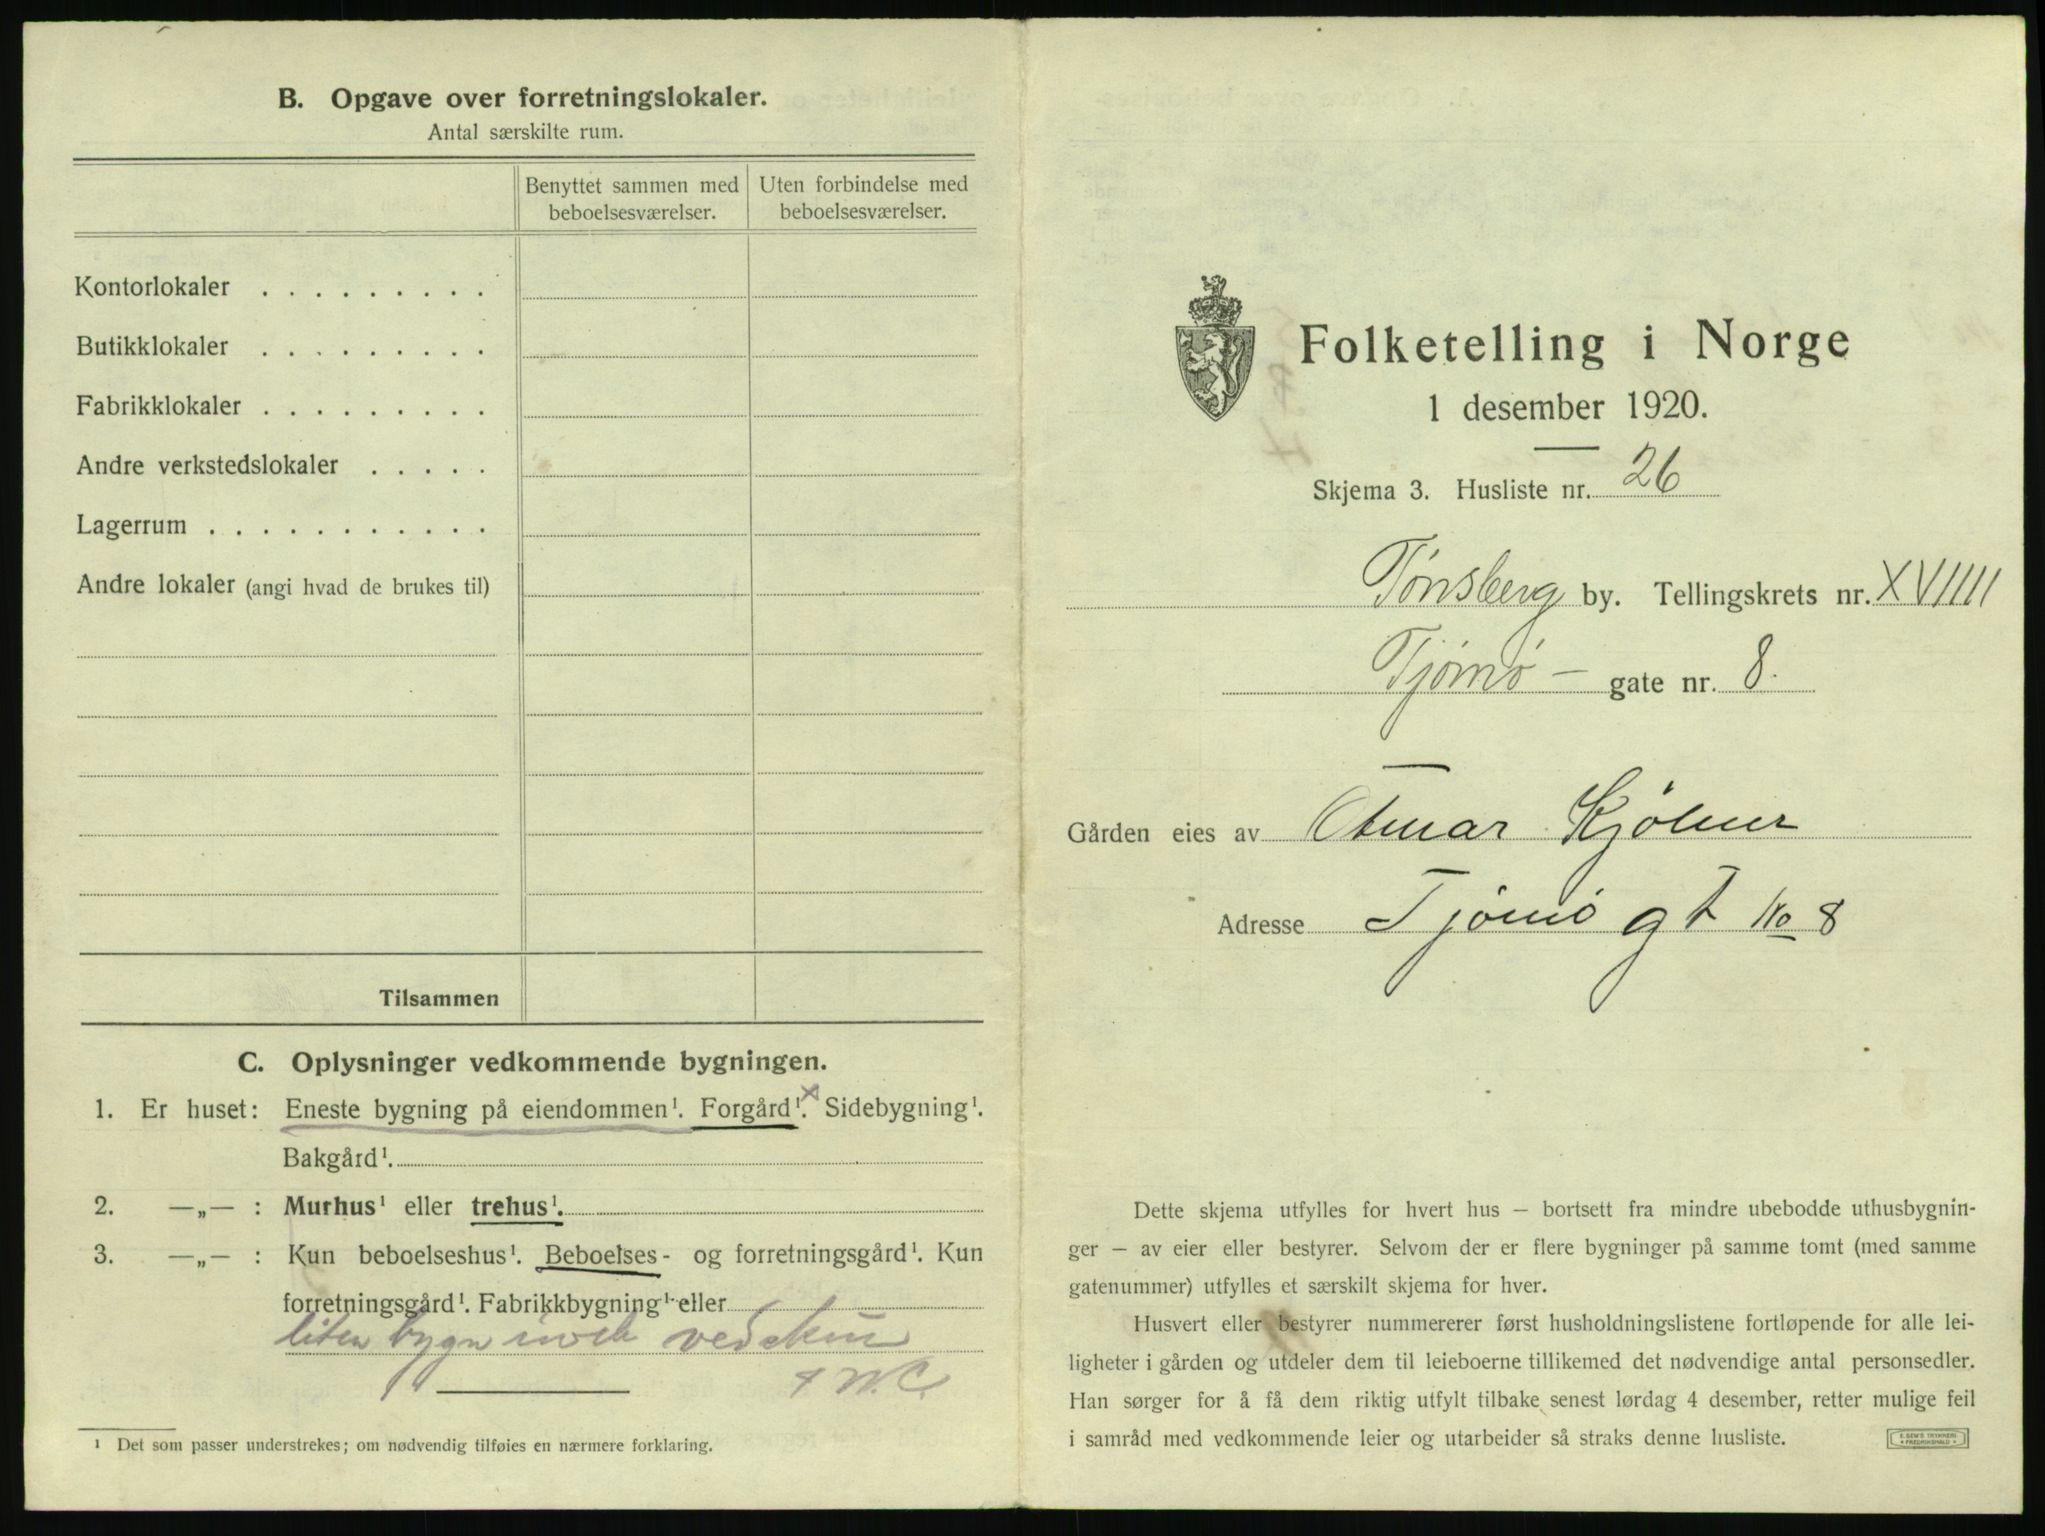 B. Opgave over forretningslokaler.
Antal særskilte rum.
Benyttet sammen med
beboelsesværelser.
Uten forbindelse med
beboelsesværelser.
Kontorlokaler . . . . . . . . .
Butikklokaler . . . . . . . . .
Fabrikklokaler . . . . . . . . .
Andre verkstedslokaler . . . . .
Lagerrum . . . . . . . . . . . .
Andre lokaler (angi hvad de brukes til)
Tilsammen
C. Oplysninger vedkommende bygningen.
1. Er huset: Eneste bygning på eiendommen¹. Forgård¹. x Sidebygning¹.
Bakgård¹.
2. —„— : Murhus¹ eller trehus¹.
3. —„— : Kun beboelseshus¹. Beboelses- og forretningsgård¹. Kun
forretningsgård¹. Fabrikkbygning¹ eller
liten bygn vedskur
+ W.C.
¹ Det som passer understrekes; om nødvendig tilføies en nærmere forklaring.
Folketelling i Norge
1 desember 1920.
Skjema 3. Husliste nr. 26
Tønsberg by. Tellingskrets nr. XVIIII
Tjømø – gate nr. 8.
Gården eies av Otmar Kjølner
Adresse Tjømø gt No 8
Dette skjema utfylles for hvert hus — bortsett fra mindre ubebodde uthusbygnin-
ger — av eier eller bestyrer. Selvom der er flere bygninger på samme tomt (med samme
gatenummer) utfylles et særskilt skjema for hver.
Husvert eller bestyrer nummererer først husholdningslistene fortløpende for alle lei-
ligheter i gården og utdeler dem til leieboerne tillikemed det nødvendige antal personsedler.
Han sørger for å få dem riktig utfylt tilbake senest lørdag 4 desember, retter mulige feil
i samråd med vedkommende leier og utarbeider så straks denne husliste.